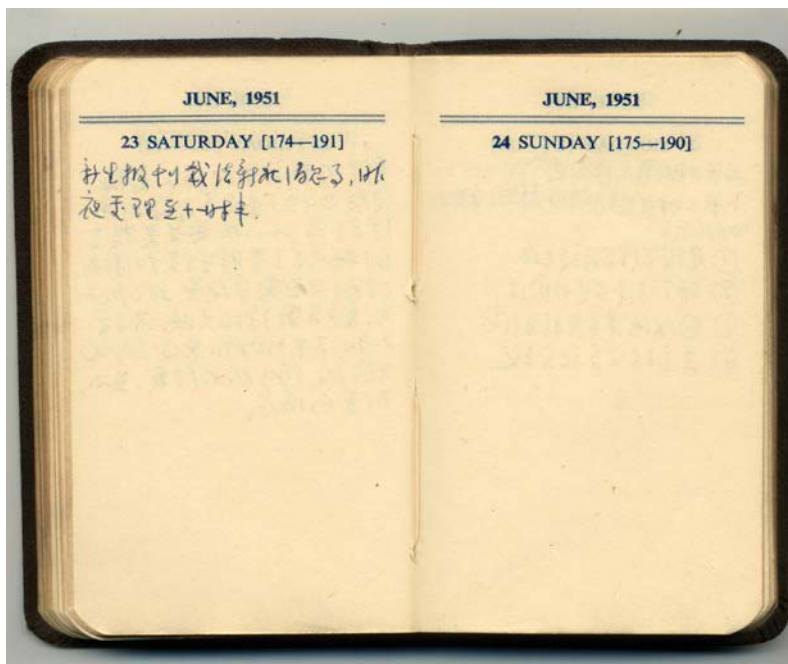 JUNE, 1951
23 SATURDAY [174—191]
新生报刊载法新社消息了,昨
夜 至十一时半.
JUNE, 1951
24 SUNDAY [175—190]